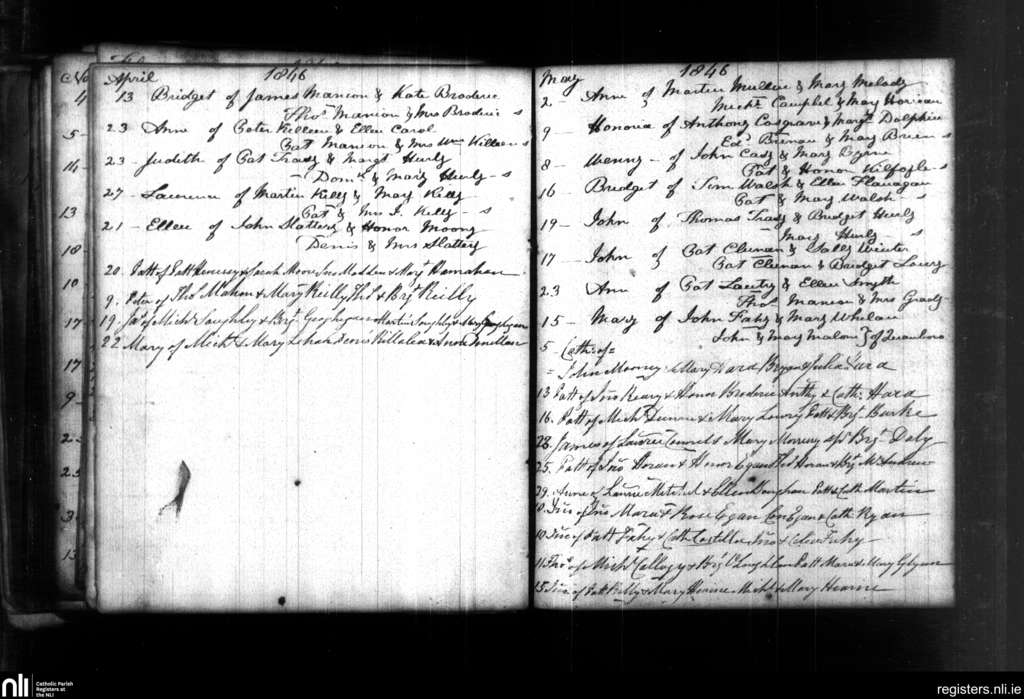 April 1846
13 Bridget of James Mannion & Kate Broderic
Thos Mannion & Mrs Broderic s
23 Ann of Peter Killeen & Ellen Carol
Pat Mannion & Mrs Wm Killeen s
23 - Judith of Pat Tracy & Margt Hurly
- Domk & Mary Hurly - s
27 - Laurence of Martin Kelly & Mary Kelly
Pat & Mrs J. Kelly - s
21 - Ellen of John Slattery & Honor Moony
Denis & Mrs Slattery
20. Patt of Patt & Sarah Moore Jno Madden & Mary
9. Peter of Thos Mahon & Mary Reilly Thos & Bgt Reilly
19. Jas of Michl & Bgt Geoghegan Martin & Mary Geoghegan
22 Mary of Michl & Mary Denis &
No
4
5
14
13
18
10
17
17
9
2
25
3
13
May 1846
2 - Ann of Martin Mullin & Mary Melady
Michl Campbel & Mary
9 - Honoria of Anthony Cosgrave & Margt Dolphin
Ed Brenan & Mary Brien s
8 - Wenny - of John Casy & Mary Byrne
Pat & Honor Kilfoyle s
16 - Bredget of Tim Walsh & Ellen Flanagan
Pat & Mary Walsh - s
19 - John of Thomas Tracy & Bredget Hurly
- Mary Hurly - s
17 - John of Pat Clunan & Sally Winter
Pat Clunan & Bridget Lowry
23 Ann of Pat & Ellen Smyth
Thos Mannion & Mrs Grady
15 - Mary of John Fahy & Mary Whelan
John & Mary Malon } of
5 - Cath: of =
= John Mooney & Mary Ward Bryan & Julia
13 Patt of Jno Keary & Honor Broderic Anthy & Cath: Hara
16. Patt of Michl Dunne & Mary Lowry Patt & Bgt Burke
28. James of & Mary & Bgt Daly
25. Patt of Jno Horan & Honor Egan Thos Horan & Bgt McAndrew
29. Anne of & Ellen Patt & Cath Martin
10. Jno of Jno Mara & Rose Egan Con Egan & Cath Ryan
10 Jno of Patt Fahy & Cath Costello Jno & Fahy
11. Thos of Michl & Bgt Loughlan Patt Mara & Mary Glynn
15 Jno of Patt Kelly & Mary Hearne Michl & Mary Hearne
nli Catholic Parish
Registers at
the NLI
registers.nli.ie